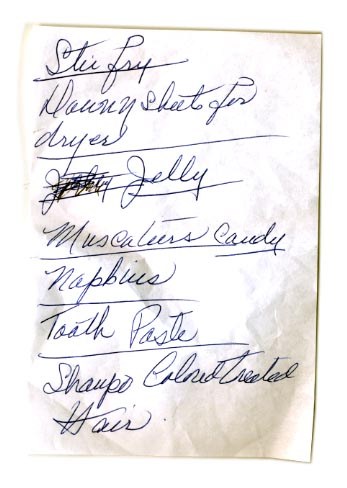 Stir fry
Downy sheets for
dryer
Jelly
Muscateers candy
Napkins
Tooth Paste
Shaupo Colored treated
Hair